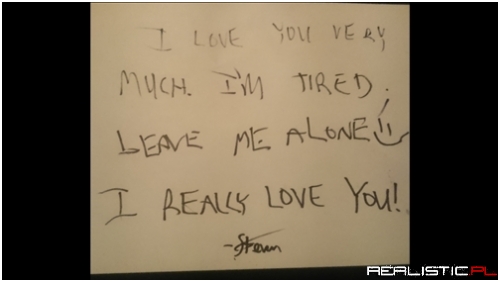 I LOVE YOU VERY
MUCH. I'M TIRED.
LEAVE ME ALONE
I REALLY LOVE YOU!
REALISTIC.PL